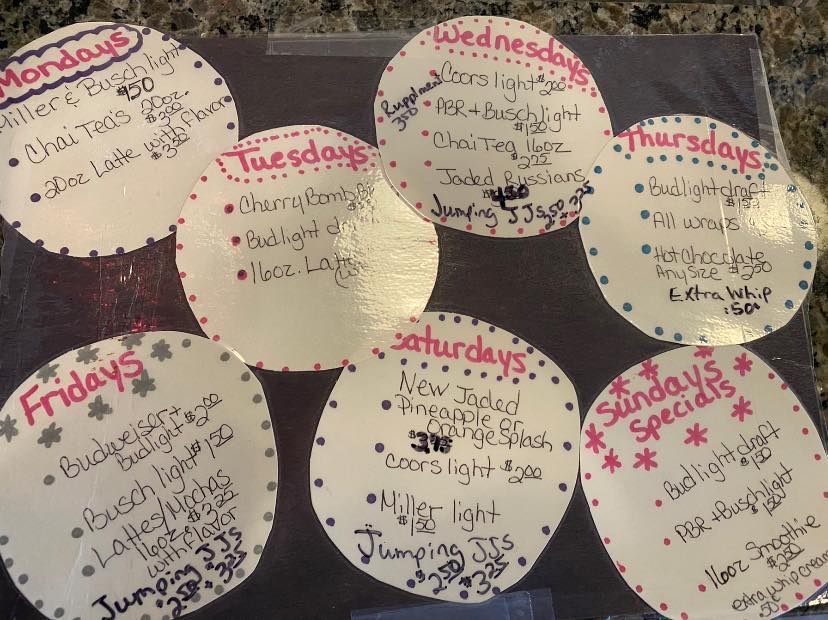 Mondays
Miller & Busch light
$1.50
Chai Tea's 20oz.
$3.00
20oz Latte with flavor
Tuesdays
Cherry Bomb
Budlight
16oz. Latte
Wednesdays
Coors light $2.00
Rumplmint
3.50
PBR + Busch light
$1.50
Chai Tea 16oz
$2.75
Jaded Russians
Jumping JJS 2.50 3.25
Thursdays
Budlight draft
$1.50
All wraps
Hot Chocolate
Any Size $2.50
Extra Whip
.50¢
Fridays
Budweiser +
Budlight $2.00
Busch light $1.50
Lattes/Mochas
16oz $3.25
with flavor
Jumping JJS
2.50 $3.25
Saturdays
New Jaded
Pineapple or
Orange Splash
$3.75
Coors light $2.00
Miller light
$1.50
Jumping JJS
$2.50 $3.25
Sundays
Specials
Budlight draft
$1.50
PBR + Busch light
$1.50
16oz Smoothie
extra whip cream
.50¢